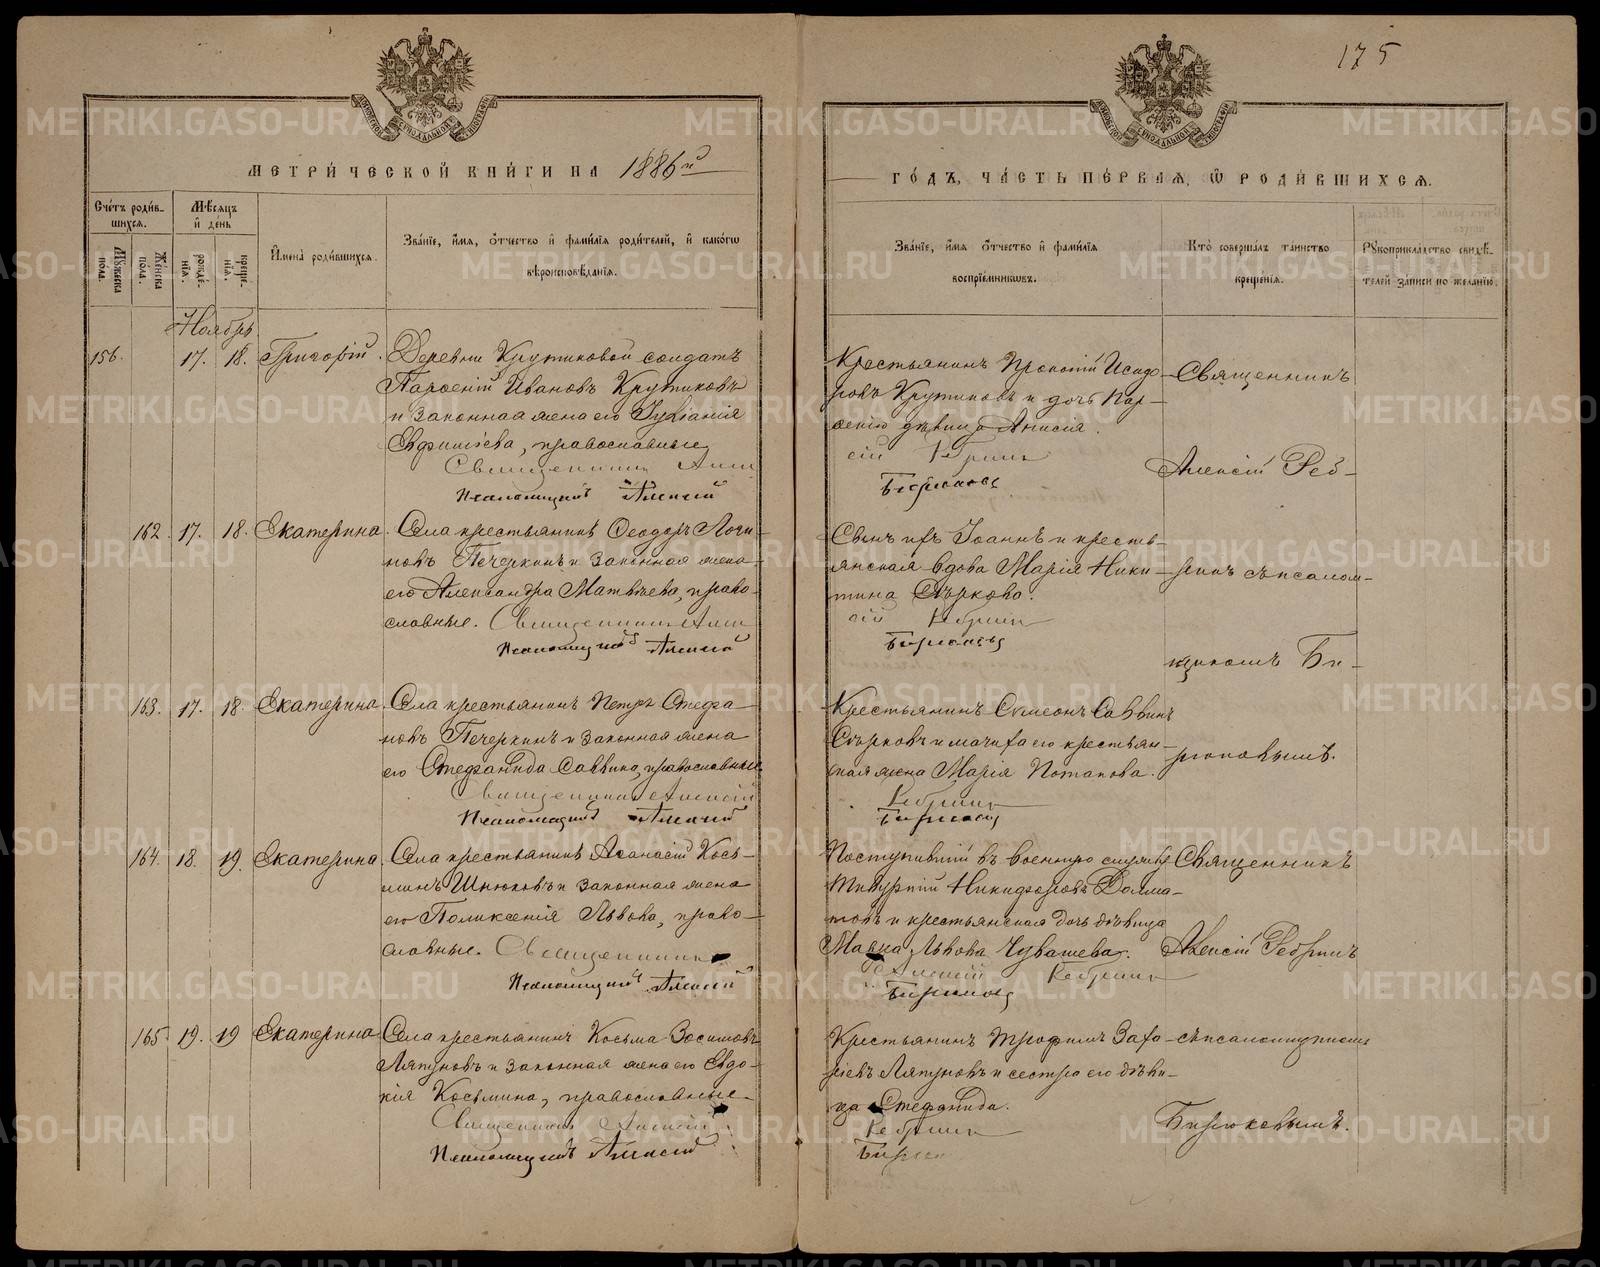 175
МЕТРИ́ЧЕСКОЙ КНИ́ГИ НА 1886й
ГО́ДЪ, ЧА́СТЬ ПЕ́РВАЯ, Ѽ РОДИ́ВШИХСЯ.
Сче́тъ роди́в-
шихся.
Мѣ́сяцъ
и҆ де́нь
Мꙋжеска
пола.
Женска
пола.
рожде́-
нїя.
креще́-
нїя.
И҆мена̀ роди́вшихся.
Зва́нїе, и҆́мя, ѻ҆́тчество и҆ фами́лїя роди́телей, и҆ како́гѡ
вѣроисповѣ́данїя.
Зва́нїе, и҆́мя ѻ҆́тчество и҆ фами́лїя
воспрїе́мникѡвъ.
Кто̀ соверша́лъ та́инство
креще́нїя.
Рꙋкоприкла́дство свидѣ́-
телей за́писи по жела́нїю.
Ноябрь
156. 17. 18. Григорій.
Деревни Крутиковой солдатъ
Парѳеній Ивановъ Крутиковъ
и законная жена его Іуліанія
Евфиміева, православные
Священникъ
Псаломщикъ Алексій
Крестьянинъ Прокопій Исидо-
ровъ Крутиковъ и дочь Пар-
ѳенія дѣвица Анисія.
сій Ребринъ
Бирюковъ
Священникъ
Алексій Реб-
162. 17. 18. Екатерина.
Села крестьянинъ Ѳеодоръ Логи-
новъ Печеркинъ и законная жена
его Александра Матвѣева, право-
славные. Священникъ
Псаломщикъ Алексій
Сынъ ихъ Іоаннъ и кресть-
янская вдова Марія Ники-
тина Сѣркова.
сій Ребринъ
Бирюковъ
ринъ съ псалом-
щикомъ Би-
163. 17. 18. Екатерина.
Села крестьянинъ Петръ Стефа-
новъ Печеркинъ и законная жена
его Стефанида Саввина, православные
Священникъ Алексій
Псаломщикъ Алексій
Крестьянинъ Симеонъ Саввинъ
Сѣрковъ и мачиха его крестьян-
ская жена Марія Потапова.
Ребринъ
Бирюковъ
рюковымъ.
164. 18. 19. Екатерина.
Села крестьянинъ Аѳанасій Кось-
минъ и законная жена
его Поликсенія Львова, право-
славные. Священникъ
Псаломщикъ Алексій
Поступившій въ военную службу
Никифоровъ Долма-
товъ и крестьянская дочь дѣвица
Львова Чувашева.
Алексій Ребринъ
Бирюковъ
Священникъ
Алексій Ребринъ
165. 19. 19 Екатерина
Села крестьянинъ Косьма Зосимовъ
Ляпуновъ и законная жена его Евдо-
кія Косьмина, православные
Священникъ Алексій
Псаломщикъ Алексій
Крестьянинъ Трофимъ Заха-
ріевъ Ляпуновъ и сестра его дѣви-
ца Стефанида.
Ребринъ
съ псаломщикомъ
Бирюковымъ.
METRIKI.GASO-URAL.RU